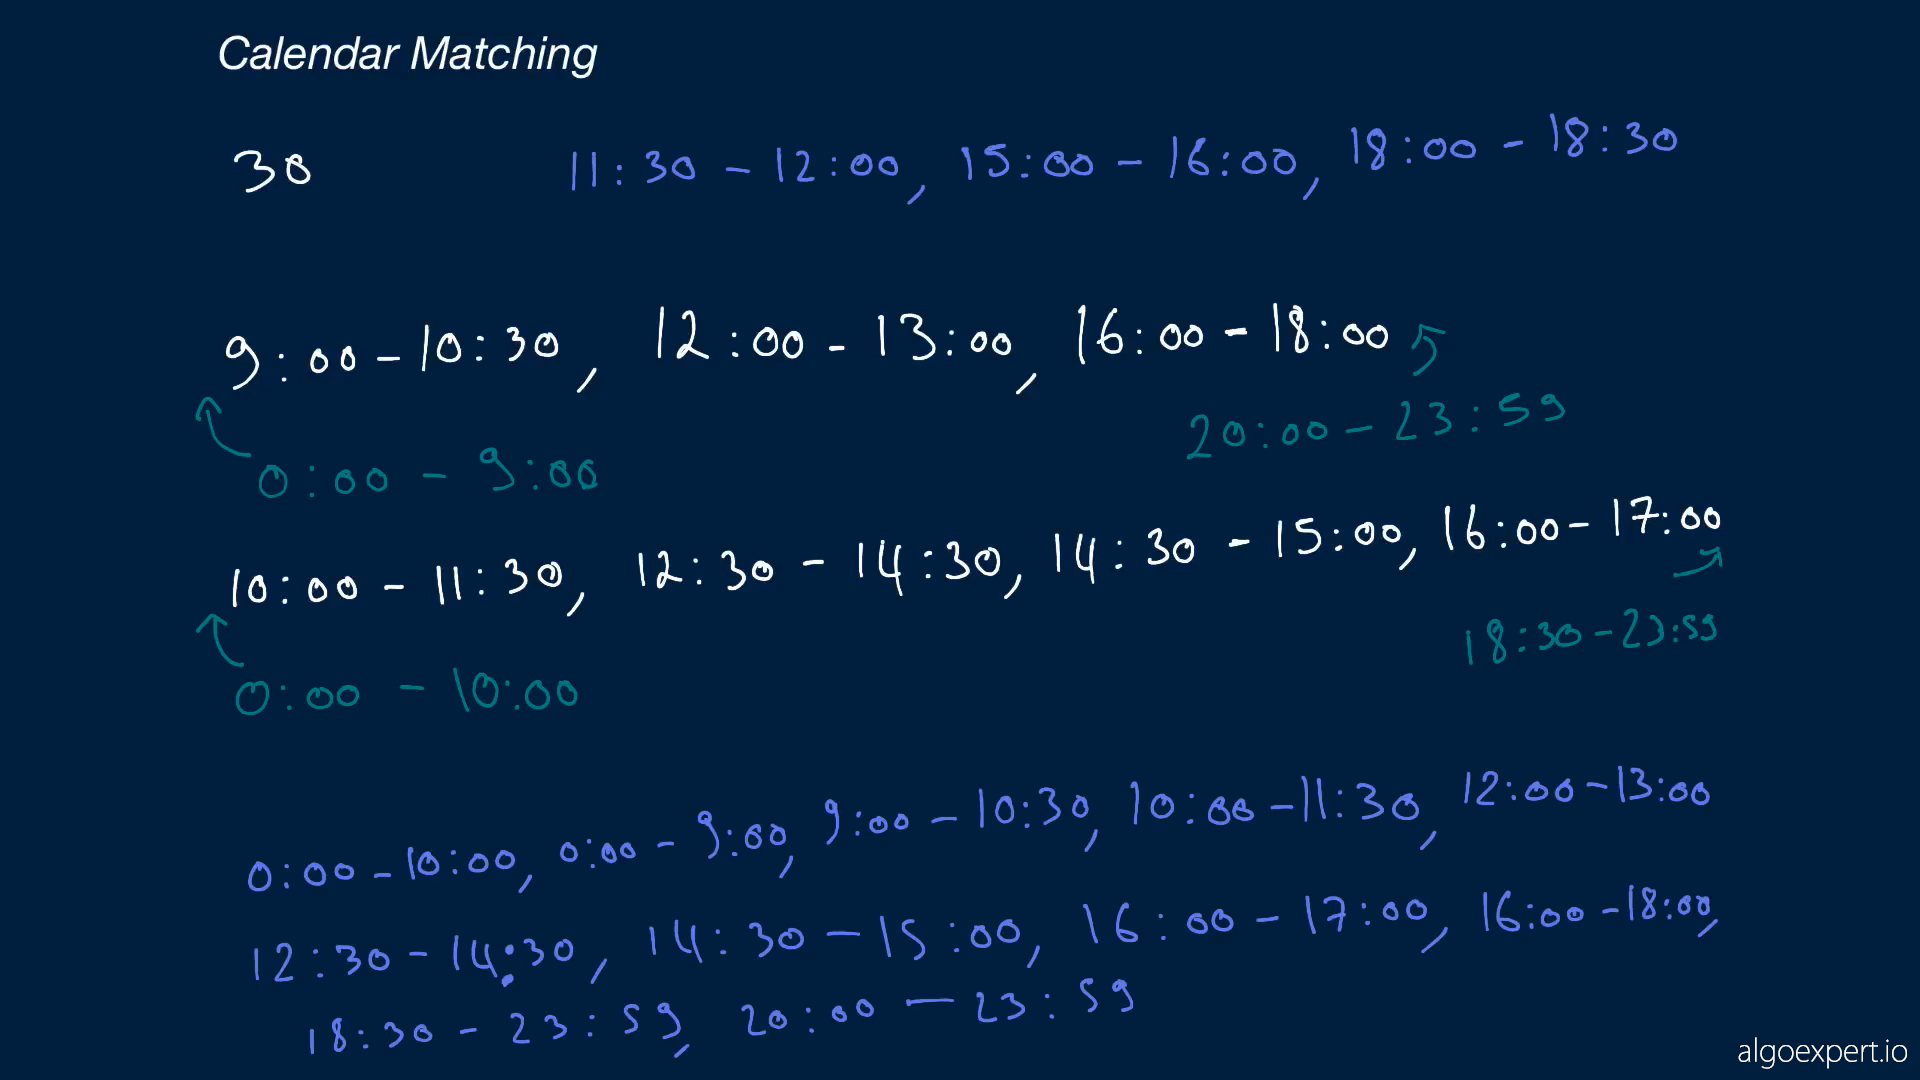 Calendar Matching
30 11:30 - 12:00, 15:00 - 16:00, 18:00 - 18:30
9:00 - 10:30, 12:00 - 13:00, 16:00 - 18:00
20:00 - 23:59
0:00 - 9:00
10:00 - 11:30, 12:30 - 14:30, 14:30 - 15:00, 16:00 - 17:00
18:30 - 23:59
0:00 - 10:00
0:00 - 10:00, 0:00 - 9:00, 9:00 - 10:30, 10:00 - 11:30, 12:00 - 13:00
12:30 - 14:30, 14:30 - 15:00, 16:00 - 17:00, 16:00 - 18:00,
18:30 - 23:59, 20:00 - 23:59
algoexpert.io